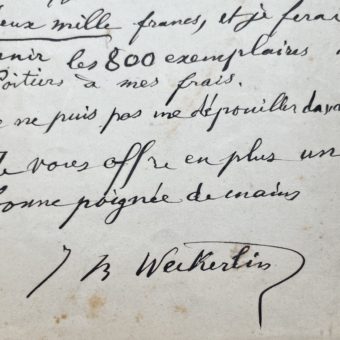 deux mille francs, et je ferai
venir les 800 exemplaires
Poitiers à mes frais.
Je ne puis pas me dépouiller davan
Je vous offre en plus un
bonne poignée de mains
J B Weckerlin